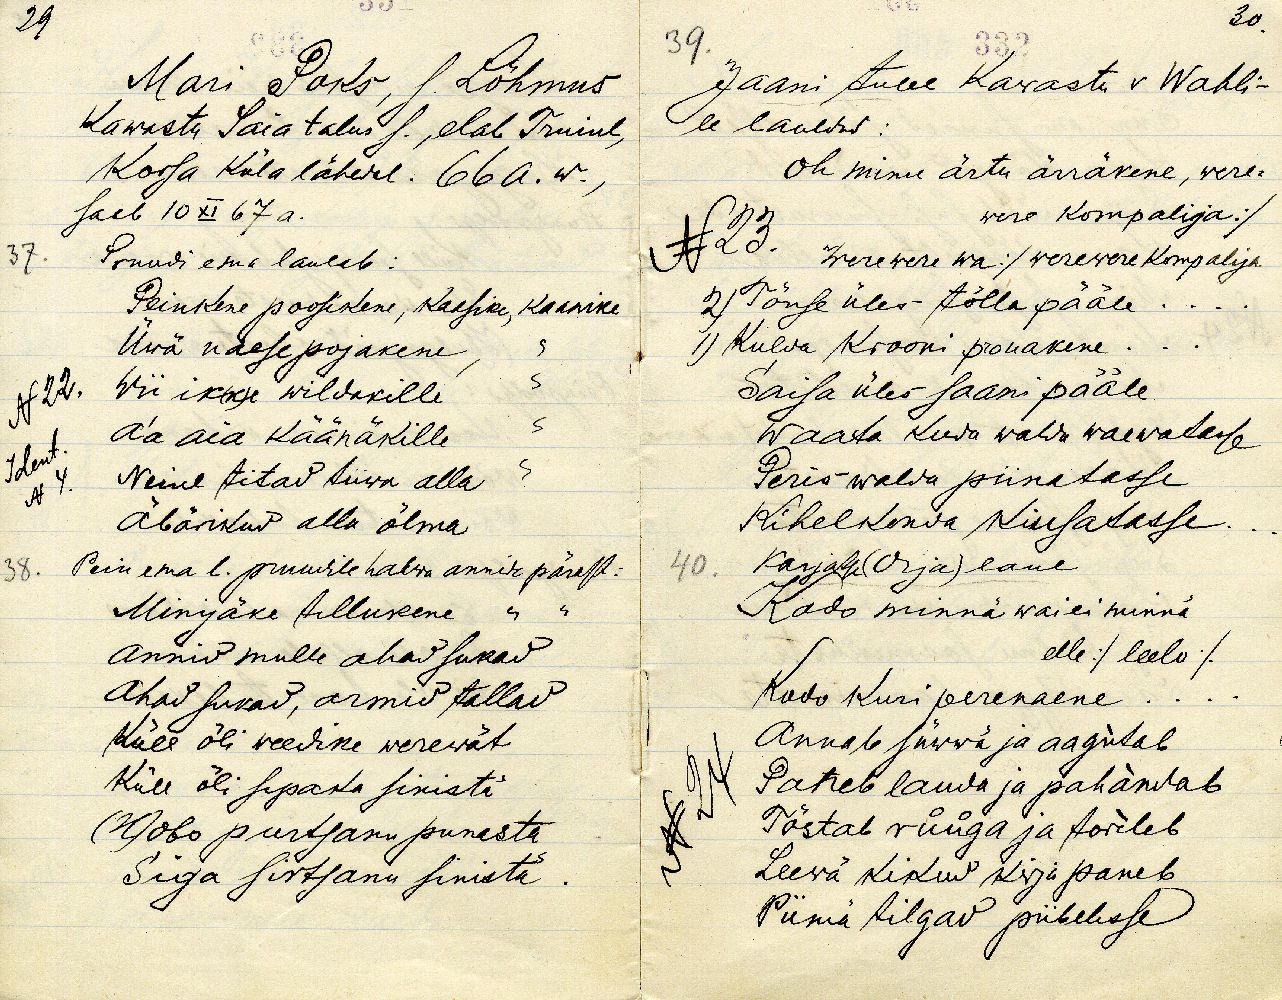 29
Mari Poks, s. Lõhmus
Kawastu Saia talus s., elab Truinl,
Kossa Küla lähedal. 66 a. w.,
saab 10 XI 67 a.
37. Pruudi ema laulab:
Peiukene poosikene, kaasike, kaanike
Üwä naese pojakene, "
№ 22. Wii ikke wildakille "
a'a aia käänäkille "
Ident. № 4. Neiul titad tiiwa alla "
Äbärikud alla õlma
38. Pein ema l. pruudile halwa annide pärast:
Minijäke tillukene " "
Annid mulle ahad sukad
Ahad sukad, armid tallad
Küll õli weedike werewät
Küll õli sepata sinistä
(H)obo purtsanu punasta
Siga sirtsanu sinistä.
30.
332
39.
Jaani tulel Kawastu v Wahli-
le lauldud:
Oh minu ärtu ärräkene, were-
were kompalija:/
№ 23. werewere wa:/ werewere kompalija
2) Tõuse üles tõlla pääle . . . .
1) Kulda krooni prouakene . . .
Saisa üles saani pääle
Waata kuda walda waewatasse
Peris-walda piinatasse
Kihelkonda kiusatasse . .
40. Karjatse (Orja) laul
Kodo minnä wai ei minnä
elle:/ leelo:/.
Kodo kuri perenaene . . . .
Annab süwwä ja aagütab
№ 24 Paneb lauda ja pahändab
Tõstab rüüga ja tõrileb
Leewä kikud kirja paneb
Piimä tilgad piibelisse